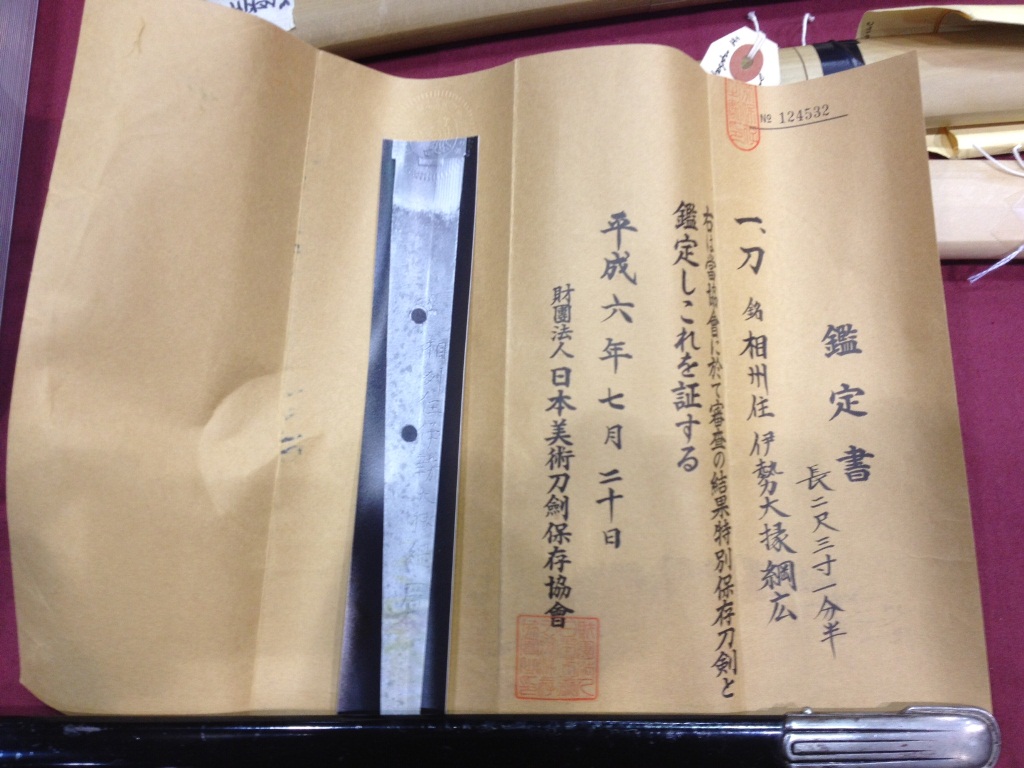 № 124532
鑑定書
長二尺三寸一分半
一、刀 銘 相州住伊勢大掾綱広
右は當協會に於て審査の結果特別保存刀剣と
鑑定しこれを証する
平成六年七月二十日
財團法人日本美術刀劍保存協會